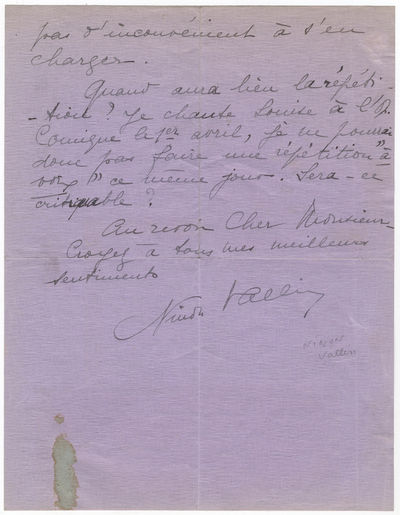 pas d'inconvénient à s'en
charger.
Quand aura lieu la répéti-
-tion ? Je chante Louise à l'Op.
Comique le 1er avril, je ne pourrai
donc pas faire une répétition "à
voix" ce même jour. Sera-ce
critiquable ?
Au revoir Cher Monsieur_
Croyez à tous mes meilleurs
sentiments
Ninon Vallin
NINON
Vallin